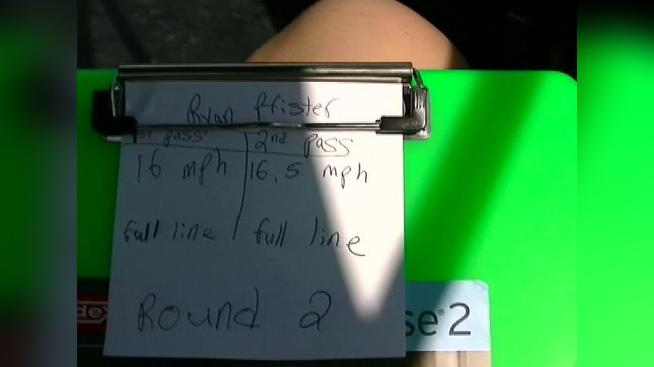 Ryan Pfister
1st pass 2nd pass
16 mph 16.5 mph
full line full line
Round 2
dex se 2